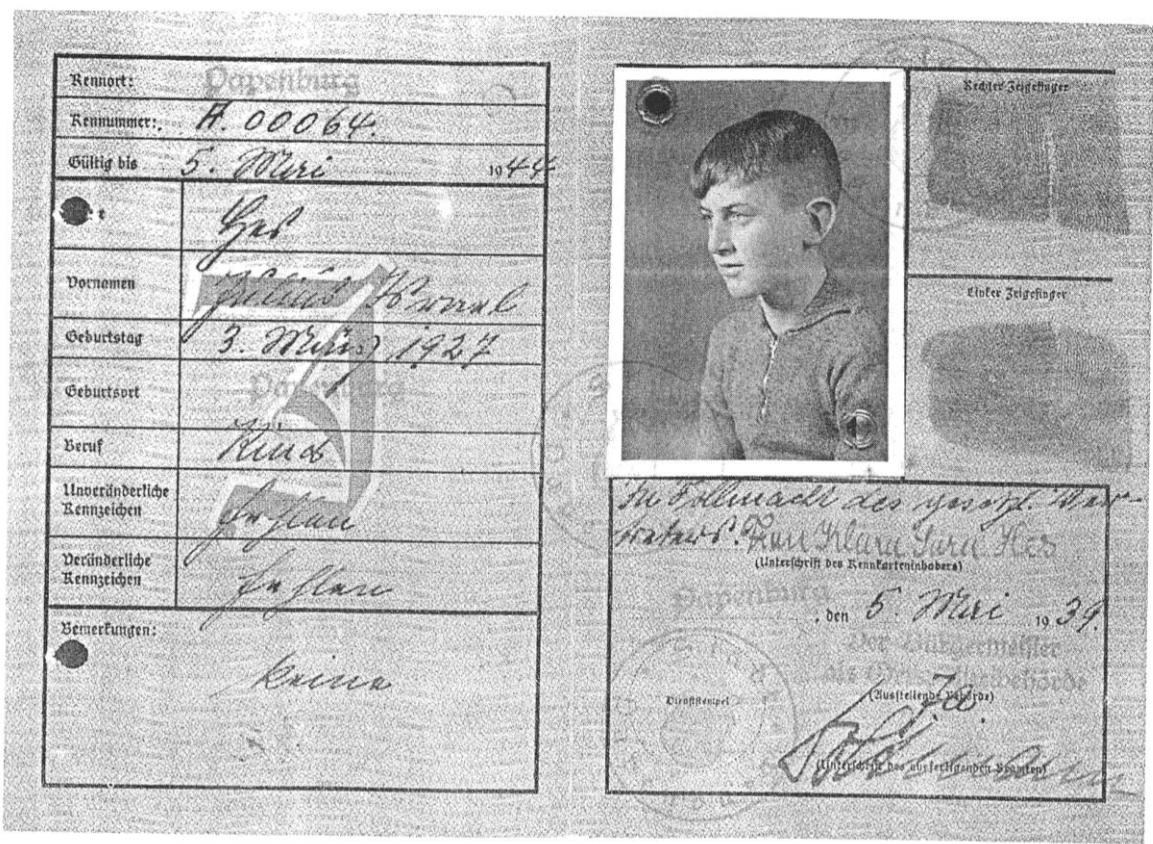 Kennort: Papenburg
Kennummer: A. 00064.
Gültig bis 5. Mai 1944
e Hes
Vornamen Julius Israel
Geburtstag 3. März 1927
Geburtsort Papenburg
Beruf Kind
Unveränderliche Kennzeichen fehlen
Veränderliche Kennzeichen fehlen
Bemerkungen: keine
J
Rechter Zeigefinger
Linker Zeigefinger
In Vollmacht des gesetzl. Ver-
treters. Frau Klara Sara Hes
(Unterschrift des Kennkarteninhabers)
Papenburg, den 5. Mai 1939.
Der Bürgermeister
als Ortspolizeibehörde
Dienststempel
(Ausstellende Behörde)
(Unterschrift des ausfertigenden Beamten)